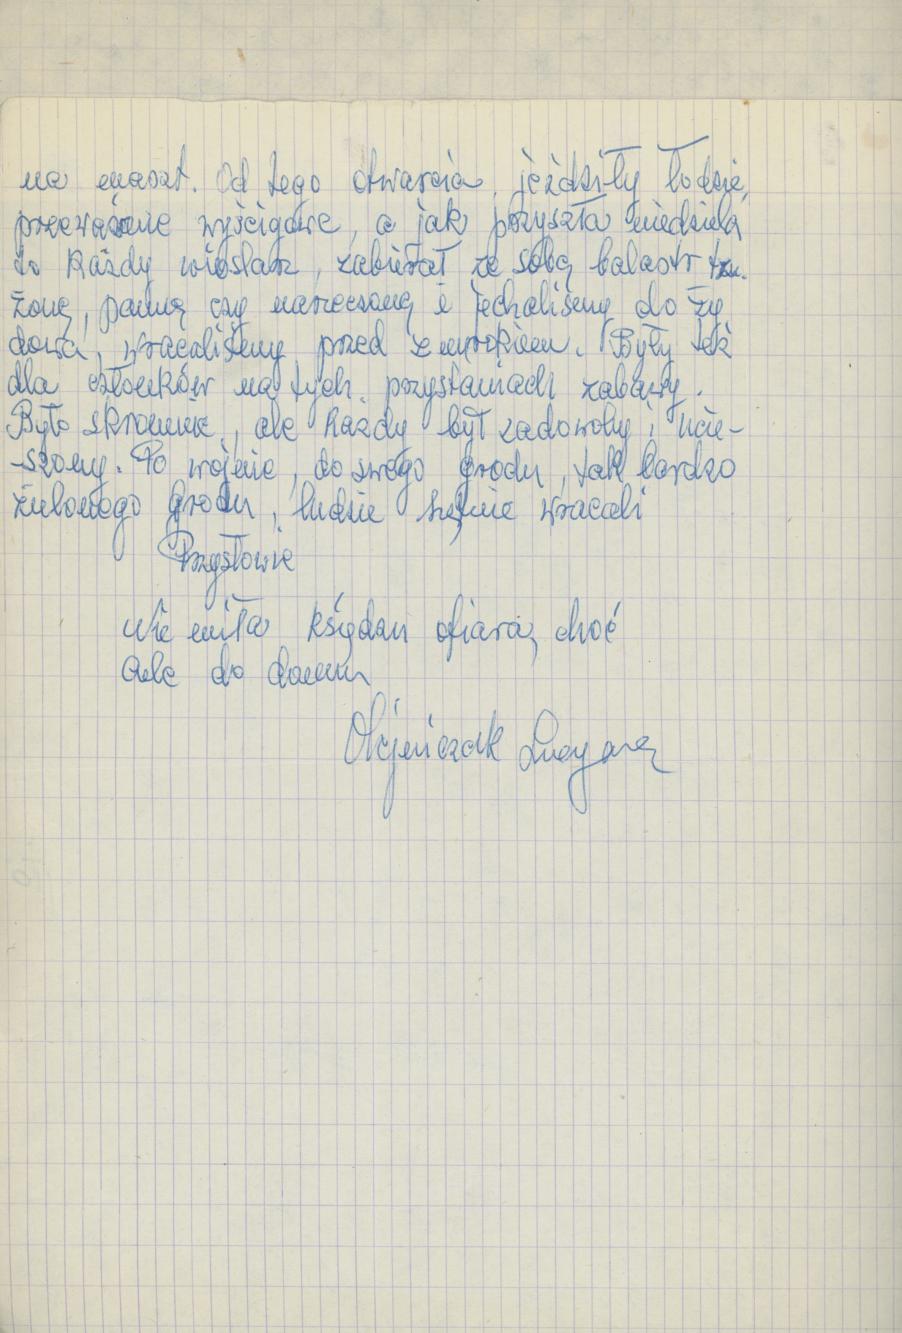 na maszt. Od tego otwarcia, jeździły łodzie,
przeważnie wyścigowe, a jak przyszła niedziela
to każdy wioślarz, zabierał ze sobą balastr tzn.
żonę, pannę czy narzeczoną i jechaliśmy do Ży
dowa, wracaliśmy przed zmrokiem. Były też
dla członków na tych przystaniach zabawy.
Było skromnie, ale każdy był zadowolny i ucie-
-szony. Po wojnie, do swego grodu, tak bardzo
grodu, ludzie wracali
Przysłowie
Nie miła księdzu ofiara, choć
cielę do domu